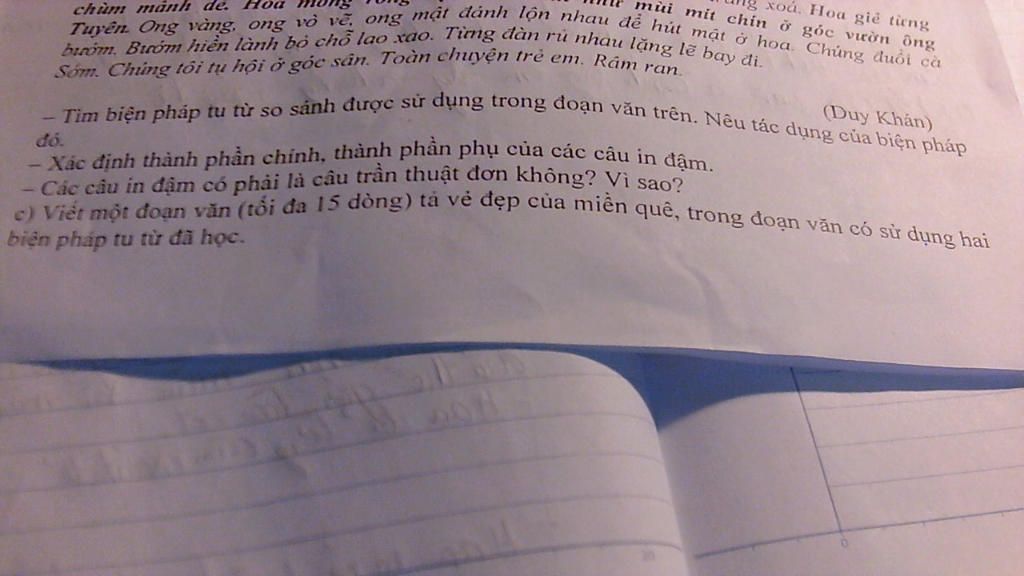 xoá. Hoa giẻ từng
chùm mảnh dẻ. Hoa móng rồng như mùi mít chín ở góc vườn ông
Tuyên. Ong vàng, ong vò vẽ, ong mật đánh lộn nhau để hút mật ở hoa. Chúng đuổi cả
bướm. Bướm hiền lành bỏ chỗ lao xao. Từng đàn rủ nhau lặng lẽ bay đi.
Sớm. Chúng tôi tụ hội ở góc sân. Toàn chuyện trẻ em. Râm ran.
(Duy Khán)
– Tìm biện pháp tu từ so sánh được sử dụng trong đoạn văn trên. Nêu tác dụng của biện pháp
đó.
– Xác định thành phần chính, thành phần phụ của các câu in đậm.
– Các câu in đậm có phải là câu trần thuật đơn không? Vì sao?
c) Viết một đoạn văn (tối đa 15 dòng) tả vẻ đẹp của miền quê, trong đoạn văn có sử dụng hai
biện pháp tu từ đã học.
0